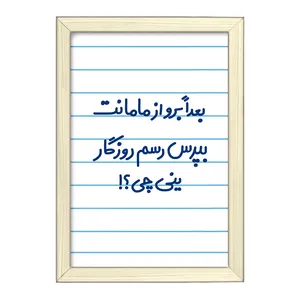 بعداً برو از مامانت
بپرس رسم روزگار
ینی چی ؟!